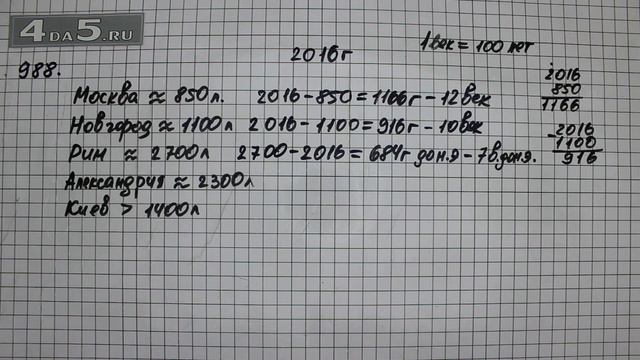 4DA5.RU
988.
2016г
1 век = 100 лет
Москва ≈ 850 л. 2016 - 850 = 1166г - 12 век
Новгород ≈ 1100 л 2016 - 1100 = 916г - 10 век
Рим ≈ 2700 л 2700 - 2016 = 684г до н.э - 7 в. до н.э.
Александрия ≈ 2300 л
Киев > 1400 л
2016
850
1166
- 2016
1100
916